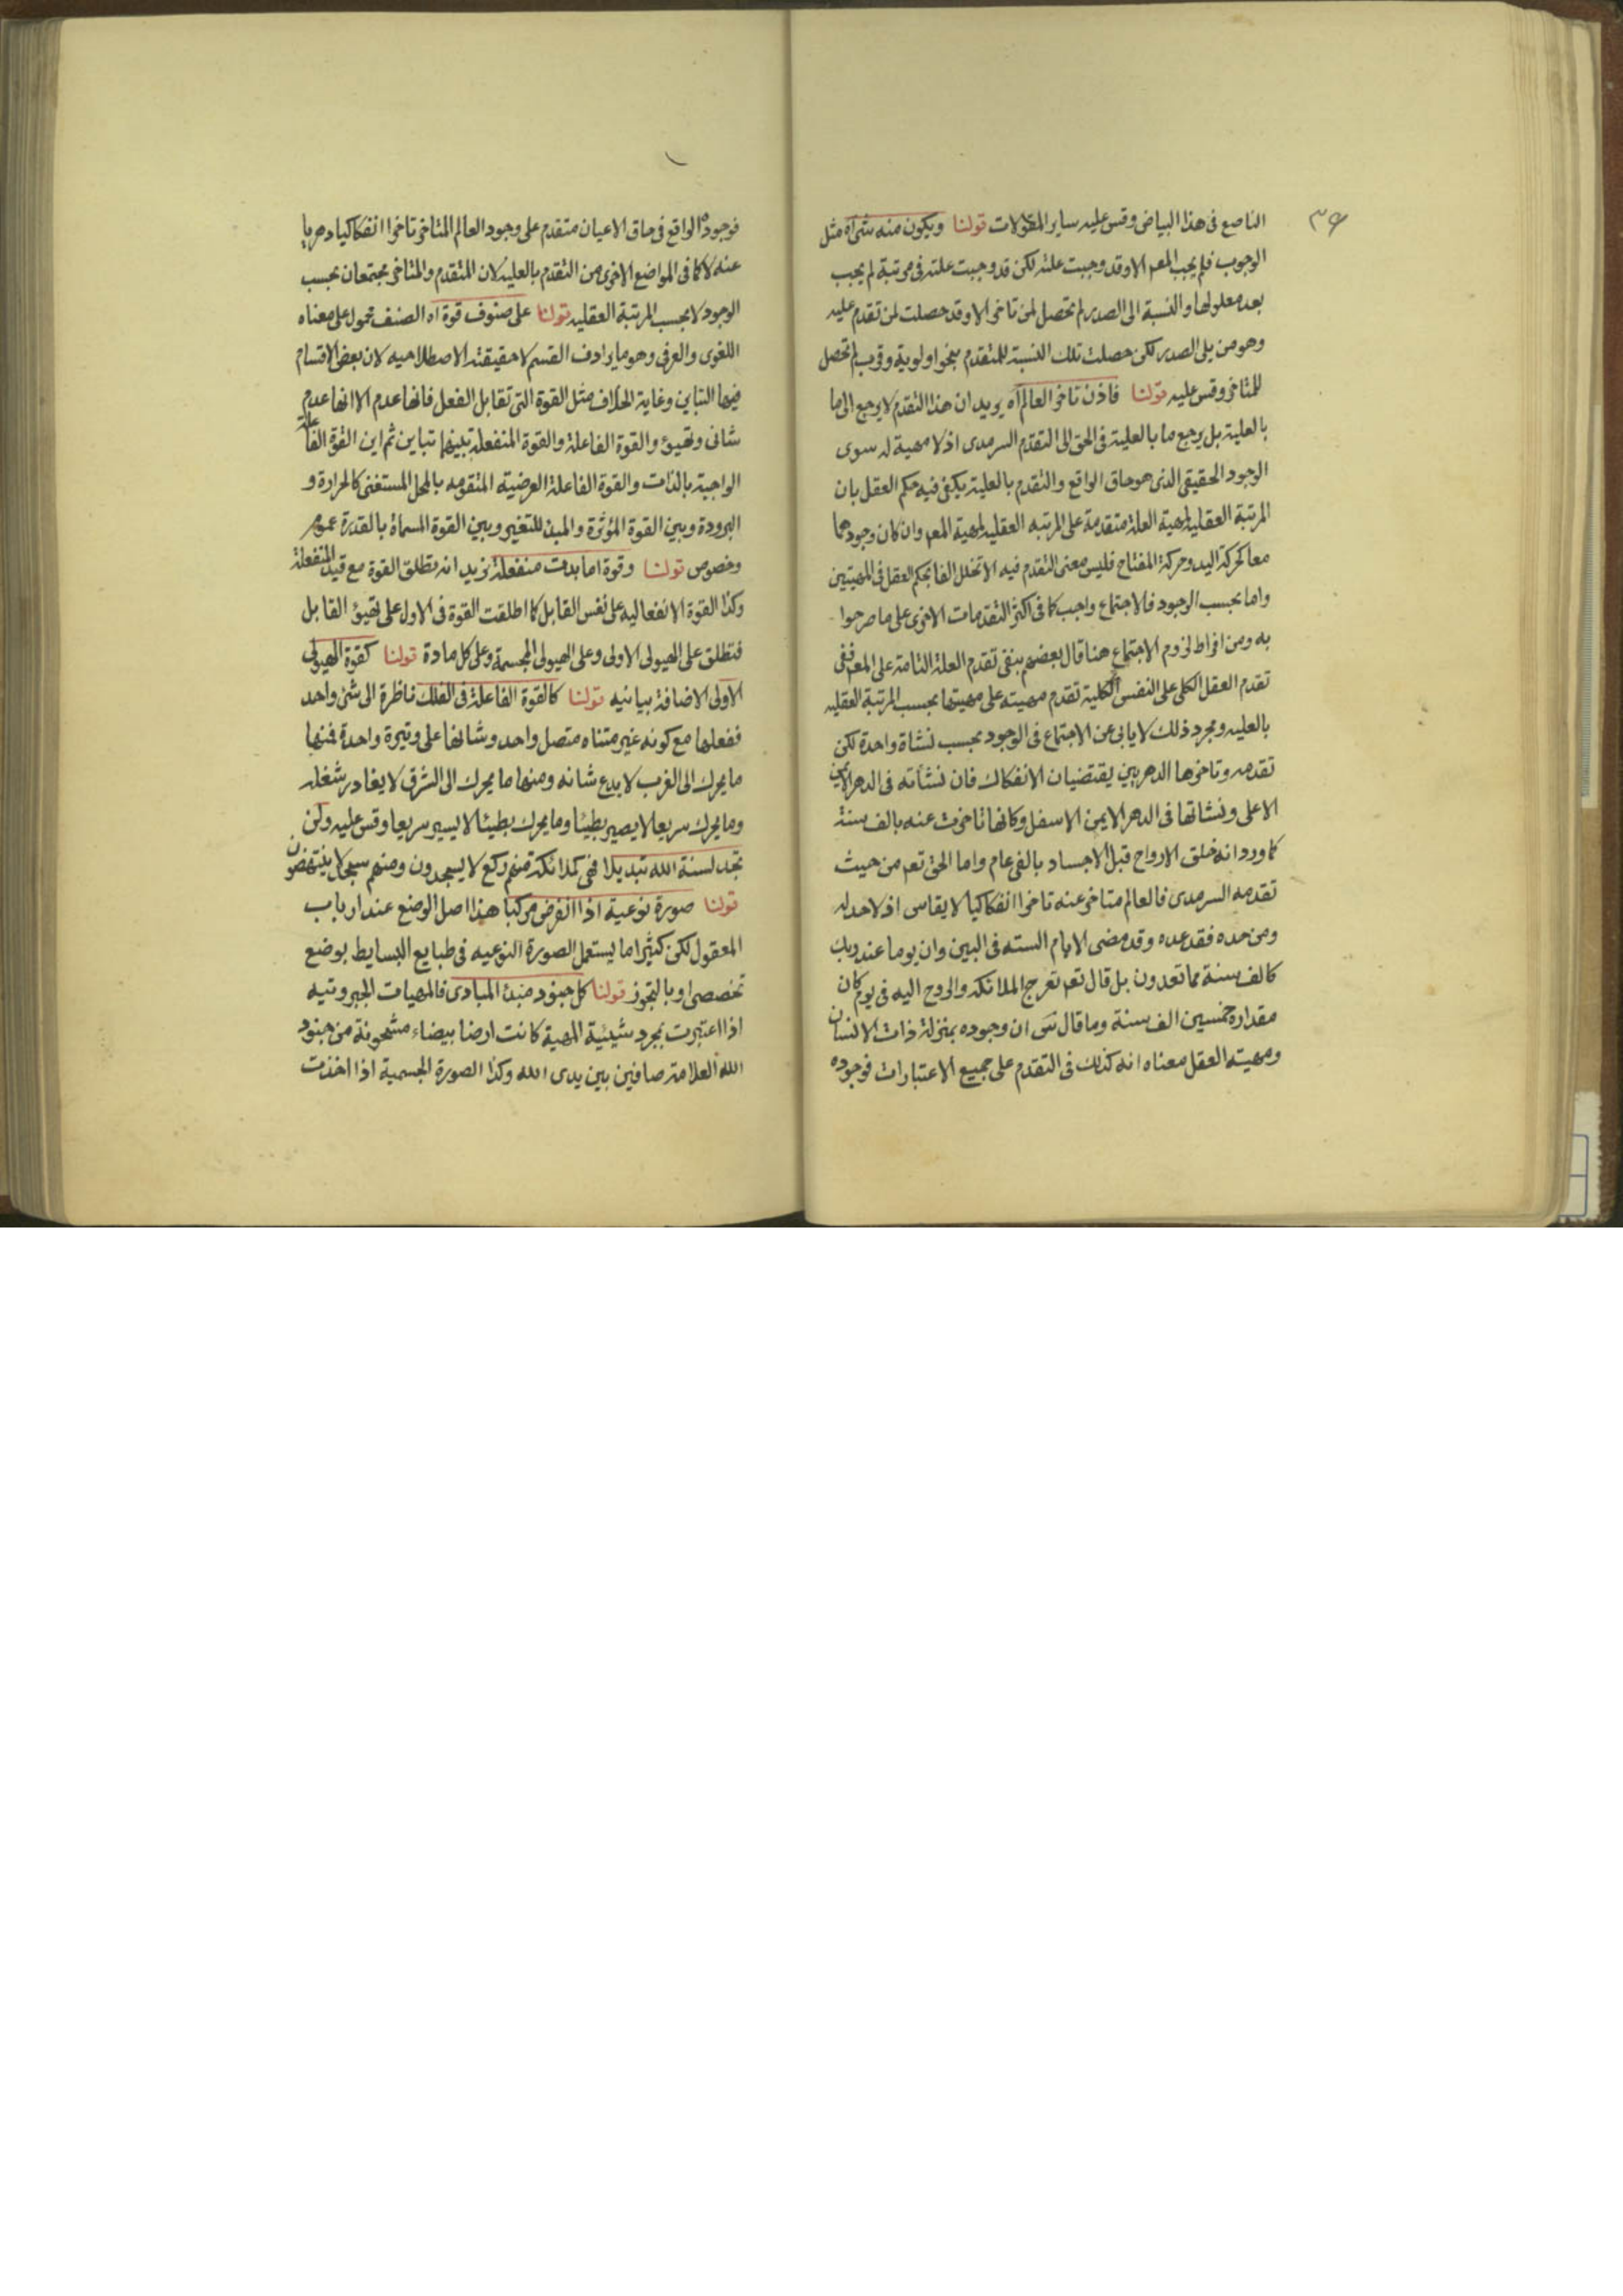 ٣٤
الناصع فى هذا البياض وقس عليه ساير المقولات قولنا ويكون منه شى آه مثل
الوجوب فلم يجب المعم الا وقد وجبت علته لكن قد وجبت علته فى مرتبة لم يجب
بعد معلولها والنسبة الى الصدر لم تحصل لمن تاخر الا وقد حصلت لمن تقدم عليه
وهو من يلى الصدر لكن حصلت تلك النسبة للمتقدم بنحو اولوية وقرب لم تحصل
للمتاخر وقس عليه قولنا فاذن تاخر العالم آه يريد ان هذا التقدم لا يرجع الى ما
بالعلية بل يرجع ما بالعلية فى الحق الى التقدم السرمدى اذ لا مهية له سوى
الوجود الحقيقى الذى هو حاق الواقع والتقدم بالعلية يكفى فيه حكم العقل بان
المرتبة العقلية لمهية العلة متقدمة على المرتبه العقليه لمهية المعم وان كان وجودهما
معا كحركة اليد وحركة المفتاح فليس معنى التقدم فيه الا تخلل الفا بحكم العقل فى المهيتين
واما بحسب الوجود فالاجتماع واجب كما فى اكثر التقدمات الاخرى على ما صرحوا
به ومن افراط لزوم الاجتماع هنا قال بعضهم بنفى تقدم العلة التامة على المعم ففى
تقدم العقل الكلى على النفس الكلية تقدم مهيته على مهيتها بحسب المرتبة العقليه
بالعليه ومجرد ذلك لا يابى عن الاجتماع فى الوجود بحسب نشاة واحدة لكن
تقدمه وتاخرها الدهريين يقتضيان الانفكاك فان نشأته فى الدهر الايمن
الاعلى ونشاتها فى الدهر الايمن الاسفل وكانها تاخرت عنه بالف سنة
كما ورد انه خلق الارواح قبل الاجساد بالفى عام واما الحق تعم من حيث
تقدمه السرمدى فالعالم متاخر عنه تاخرا انفكاكيا لا يقاس اذ لا حد له
ومن حده فقد عده وقد مضى الايام السته فى البين وان يوما عند ربك
كالف سنة مما تعدون بل قال تعم تعرج الملائكه والروح اليه فى يوم كان
مقداره خمسين الف سنة وما قال س ان وجوده بمنزلة ذات الانسان
ومهيته العقل معناه انه كذلك فى التقدم على جميع الاعتبارات فوجوده
فوجوده الواقع فى حاق الاعيان متقدم على وجود العالم المتاخر تاخرا انفكاكيا دهريا
عنه لا كما فى المواضع الاخرى من التقدم بالعليه لان المتقدم والمتاخر مجتمعان بحسب
الوجود لا بحسب المرتبة العقليه قولنا على صنوف قوة اه الصنف محمول على معناه
اللغوى والعرفى وهو ما يرادف القسم لا حقيقته الاصطلاحيه لان بعض الاقسام
فيها التباين وغاية الخلاف مثل القوة التى تقابل الفعل فانها عدم الا انها عدم
شانى وتهيؤ والقوة الفاعلة والقوة المنفعلة بينهما تباين ثم اين القوة الفاعلة
الواجبة بالذات والقوة الفاعلة العرضية المتقومه بالمحل المستغنى كالحرارة و
البرودة وبين القوة المؤثرة والمبدء للتغير وبين القوة المسماة بالقدرة عموم
وخصوص قولنا وقوة اما بدت منفعلة نريد انه تطلق القوة مع قيد المنفعلة
وكذا القوة الانفعاليه على نفس القابل كما اطلقت القوة فى الاول على تهيؤ القابل
فتطلق على الهيولى الاولى وعلى الهيولى المجسمة وعلى كل مادة قولنا كقوة الهيولى
الاولى الاضافة بيانيه قولنا كالقوة الفاعلة فى الفلك ناظرة الى شئ واحد
ففعلها مع كونه غير متناه متصل واحد وشانها على وتيرة واحدة فمنها
ما يحرك الى الغرب لا يدع شانه ومنها ما يحرك الى الشرق لا يغادر شغله
وما يحرك سريعا لا يصير بطيئا وما يحرك بطيئا لا يسير سريعا وقس عليه ولن
تجد لسنة الله تبديلا فهى كملائكة منهم ركع لا يسجدون ومنهم سجد لا ينتهضون
قولنا صورة نوعية اذا انفرض مركبا هذا اصل الوضع عند ارباب
المعقول لكن كثيرا ما يستعمل الصورة النوعيه فى طبايع البسايط بوضع
تخصصى او بالتجوز قولنا كل جنود مبدئ المبادى فالمهيات الجبروتيه
اذا اعتبرت بمجرد شيئية المهية كانت ارضا بيضاء مشحونة من جنود
الله العلامة صافين بين يدى الله وكذا الصورة الجسمية اذا اخذت